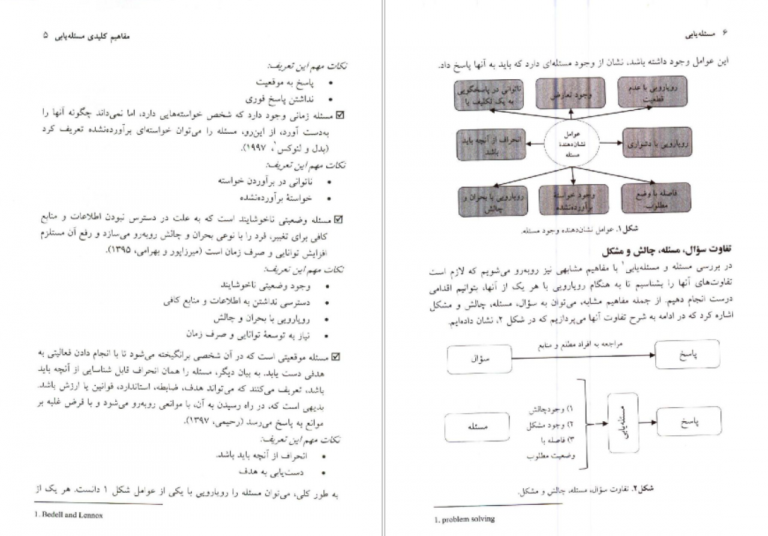 مفاهیم کلیدی مسئله‌یابی ۵
نکات مهم این تعریف:
• پاسخ به موقعیت
• نداشتن پاسخ فوری
☑ مسئله زمانی وجود دارد که شخص خواسته‌هایی دارد، اما نمی‌داند چگونه آنها را
به‌دست آورد، از این‌رو، مسئله را می‌توان خواسته‌ای برآورده‌نشده تعریف کرد
(بدل و لنوکس۱، ۱۹۹۷).
نکات مهم این تعریف:
• ناتوانی در برآوردن خواسته
• خواستهٔ برآورده‌نشده
☑ مسئله وضعیتی ناخوشایند است که به علت در دسترس نبودن اطلاعات و منابع
کافی برای تغییر، فرد را با نوعی بحران و چالش روبه‌رو می‌سازد و رفع آن مستلزم
افزایش توانایی و صرف زمان است (میرزاپور و بهرامی، ۱۳۹۵).
نکات مهم این تعریف:
• وجود وضعیتی ناخوشایند
• دسترسی نداشتن به اطلاعات و منابع کافی
• رویارویی با بحران و چالش
• نیاز به توسعهٔ توانایی و صرف زمان
☑ مسئله موقعیتی است که در آن شخصی برانگیخته می‌شود تا با انجام دادن فعالیتی به
هدفی دست یابد. به بیان دیگر، مسئله را همان انحراف قابل شناسایی از آنچه باید
باشد، تعریف می‌کنند که می‌تواند هدف، ضابطه، استاندارد، قوانین یا ارزش باشد.
بدیهی است که، در راه رسیدن به آن، با موانعی روبه‌رو می‌شود و با فرض غلبه بر
موانع به پاسخ می‌رسد (رحیمی، ۱۳۹۷).
نکات مهم این تعریف:
• انحراف از آنچه باید باشد.
• دست‌یابی به هدف
به طور کلی، می‌توان مسئله را رویارویی با یکی از عوامل شکل ۱ دانست. هر یک از
1. Bedell and Lennox
۶ مسئله‌یابی
این عوامل وجود داشته باشد، نشان از وجود مسئله‌ای دارد که باید به آنها پاسخ داد.
رویارویی با عدم
قطعیت
وجود تعارض
ناتوانی در پاسخگویی
به یک تکلیف با
رویارویی با دشواری
عوامل
نشان‌دهندهٔ
مسئله
انحراف از آنچه باید
باشد
فاصله با وضع
مطلوب
وجود خواستهٔ
برآورده‌نشده
رویارویی با بحران و
چالش
شکل ۱. عوامل نشان‌دهنده وجود مسئله.
تفاوت سؤال، مسئله، چالش و مشکل
در بررسی مسئله و مسئله‌یابی۱ با مفاهیم مشابهی نیز روبه‌رو می‌شویم که لازم است
تفاوت‌های آنها را بشناسیم تا به هنگام رویارویی با هر یک از آنها، بتوانیم اقدامی
درست انجام دهیم. از جمله مفاهیم مشابه، می‌توان به سؤال، مسئله، چالش و مشکل
اشاره کرد که در ادامه به شرح تفاوت آنها می‌پردازیم که در شکل ۲، نشان داده‌ایم.
سؤال
مراجعه به افراد مطلع و منابع
پاسخ
مسئله
۱) وجود چالش
۲) وجود مشکل
۳) فاصله با
وضعیت مطلوب
مسئله‌یابی
پاسخ
شکل ۲. تفاوت سؤال، مسئله، چالش و مشکل.
1. problem solving